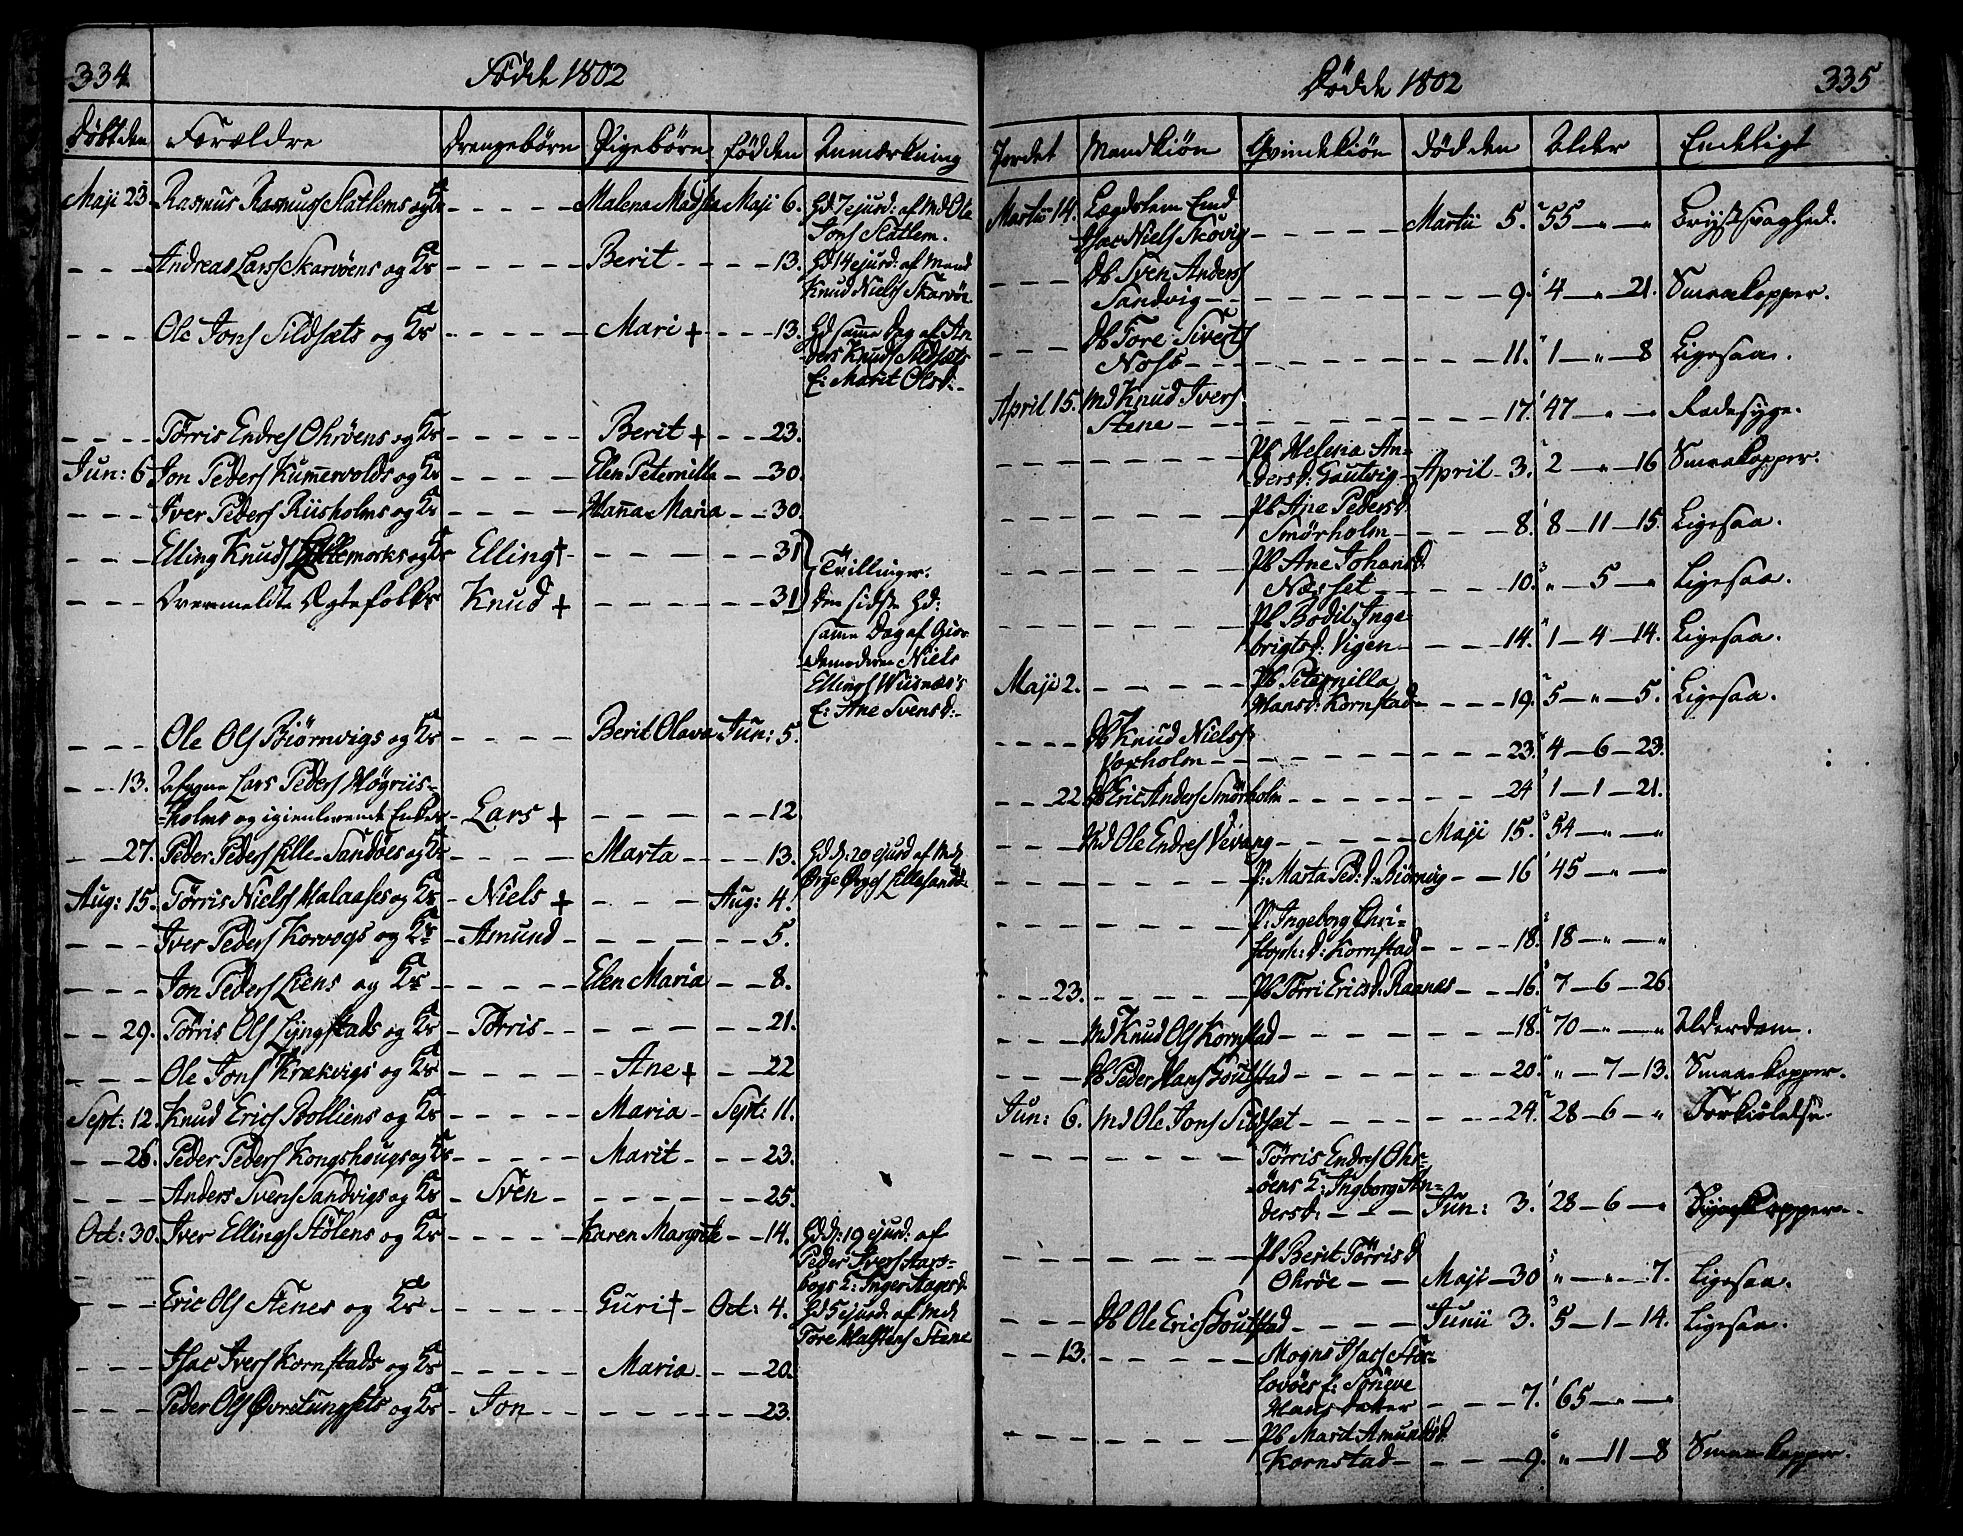 334 Fødde 1802
Døbt den Forældre Drengebørn Pigebørn fød den Anmærkning
Maji 23. Rasmus Rasmuss Slatlems og K: - - - - - Malena Maji 6. Hd 7 ejusd: af Md Ole
Jons Slatlem.
- - - Andreas Larss Skarvøens og K: - - - - - Berit - - - - 13. Hd 14 ejusd: af Mand
Knud Niels Skarvøe
- - - Ole Jons Sildsæts og K: - - - - - Mari + - - - 13. Hd samme Dag af An-
ders Knuds Sildsæts
E: Marit Olsd: -
- - - - Tørris Endres Ohrøens og K: - - - - - Berit + - - - 23.
Jun: 6. Jon Peders Kumervolds og K: - - - - - Elen Peternilla - - 30.
- - - Iver Peders Riisholms og K: - - - - Hanna Maria - - 30.
- - - Elling Knuds Lillemorks og K: Elling + - - - - - - 31
Tvillinger.
- - - Overmeldte Ægtefolks Knud + - - - - - - 31 Den sidste Hd:
samme Dag af Gior-
demoderen Niels
Ellings Wisnæs's
E: Ane Svensd: -
- - - Ole Ols Biørnvigs og K: - - - - Berit Olava Jun: 5.
- - 13. Afggne Lars Peders Høgriis-
holms og igienlevende Enkes - Lars + - - - - - 12
- - 27. Peder Peders Lille-Sandøes og K: - - - - - Marta - - - - 13. Hd d: 20 ejusd af Md
Ørge Ørges Lillesandøe
Aug: 15. Tørris Niels Malaases og K: - Niels + - - - Aug: 4.
- - - Iver Peders Korvogs og K: - Amund - - - - - - 5.
- - - Jon Peders Liens og K: - Elen Maria - - 8.
- - 29. Tørris Ols Lyngstads og K: - Tørris - - - - - - - 21.
- - - Ole Jons Krækvigs og K: - - - - - Ane + - - 22
Sept: 12. Knud Erics Bolliens og K: - - - - - Maria - Sept: 11.
- - 26. Peder Peders Kongshougs og K: - - - - - Marit - - - 23.
- - - Anders Svens Sandvigs og K: - Sven - - - - - - - 25.
Oct: 30. Iver Ellings Stølens og K: - - - - - Karen Margrete - - 14. Hd d: 19 ejusd: af
Peder Ivers Hars-
bogs E: Inger Aagesd.
- - - Eric Ols Stenes og K: - - - - - - Guri + - Oct: 4. Hd 5 ejusd: af Md
Tore Halstens Stene
- - - Isac Ivers Kornstads og K: - - - - - Maria - - - 20.
- - - Peder Ols Øvretungsets og K: - Jon - - - - - - - 23.
Dødde 1802 335
Jordet Mandkiøn Qvindekiøn Død den Alder Endeligt
Martii 14. Lægdslem Emd
Isac Niels Skovig - - - - - Martii 5. 55 - " - " Brystsvaghed.
Db Sven Anders
Sandvig - - - - - - - - - - 9. 4 - " - 21. Smaakopper.
- - - Db Tore Siverts
Nose - - - - - - - - - - 11. 1 - " - 8 Ligesaa.
April 15. Md Knud Ivers
Stene - - - - - - - - - - 17. 47 - " - Radesyge.
- - - - - - - - Pb Melena An-
dersd: Gautvig - April - 3. 2 - " - 16 Smaakopper.
- - - - - - - - Pb Ane Pedersd
Smørholm - - - - 8. 8 - 11 - 15. Ligesaa.
- - - - - - - - Pb Ane Johansd.
Næsset - - - - 10. " - 5 - " Ligesaa.
- - - - - - - - Pb Bodil Inge-
brigtsd: Vigen - - - - 14. 1 - 4 - 14. Ligesaa.
Maji 2. - - - - - Pb Peternilla
Hansd: Kornstad - - - - 19. 5 - " - 5. Ligesaa.
- - - - Db Knud Niels
Foxholm - - - - - - - - - - 23. 4 - 6 - 23.
- - - 22. Db Eric Anders Smørholm - - - - - - - - 24 1 - 1 - 21.
- - - Md Ole Endres Vevang - - - - - Maji 15. 54 - " - "
- - - - - - - - P: Marta Ped: d: Biørnvig - - 16 45 - " - "
- - - - - - - - P: Ingeborg Chri-
stoph: d: Kornstad - - - - 18. 18 - " - "
- - - 23. - - - - - Pb Tørri Ericsd. Raanæs - - - 16. 7 - 6 - 26.
- - - Md Knud Ols Kornstad - - - - - - - - 18. 70 - " - " Alderdom.
- - - Db Peder Hans Goutstad - - - - - - - - 20. " - 7 - 13. Smaakopper.
Jun: 6. Md Ole Jons Sildsæt - - - - - - - - 24. 28 - 6 - " Forkiølelse.
- - - - - - - - Tørris Endres Ohr-
øens E: Ingborg An-
dersd: - - - Jun: 3. 28 - 6 - "
- - - - - - - - Pb Berit Tørrisd
Ohrøe - - - Maji - 30 " - " - 7. Ligesaa.
- - - Db Ole Erics Goutstad - - - - Junii 3. 5 - 1 - 14. Ligesaa.
- - 13. - - - - - Mogns Isacs Stor-
lovøes E: Syneve
Hansdatter - - - - 7. 65 - " - "
- - - - - - - - Pb Marit Amundsd.
Kornstad - - - - 9. " - 11 - 8 Smaakopper.